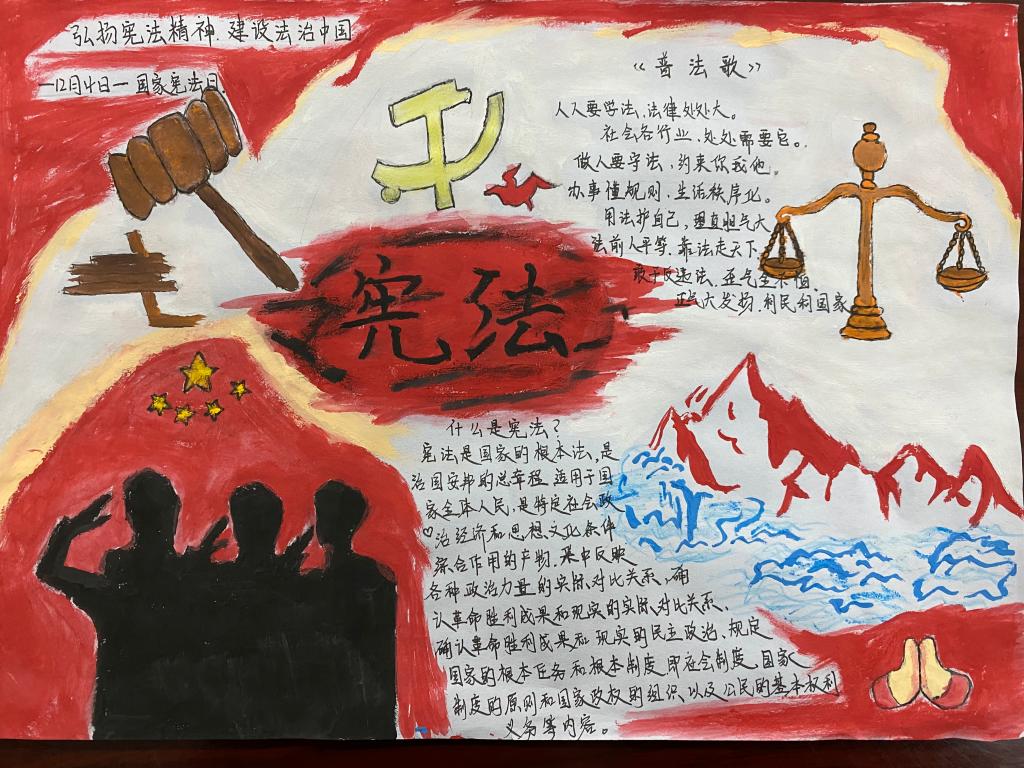 弘扬宪法精神.建设法治中国
一12月4日一国家宪法日
《普法歌》
人人要学法、法律处处大。
社会各行业、处处需要它。
做人要守法、约束你我他。
办事懂规则、生活秩序化。
用法护自己,理直胆气大
法前人平等.靠法走天下
敢于反违法、歪气
正气大发扬.利民利国家
宪法
什么是宪法?
宪法是国家的根本法、是
治国安邦的总章程 适用于国
家全体人民、是特定社会政
治经济和思想文化条件
综合作用的产物.集中反映
各种政治力量的实际对比关系、确
认革命胜利成果和现实的实际对比关系、
确认革命胜利成果和现实的民主政治、规定
国家的根本任务和根本制度 即社会制度、国家
制度的原则和国家政权的组织、以及公民的基本权利
义务等内容。